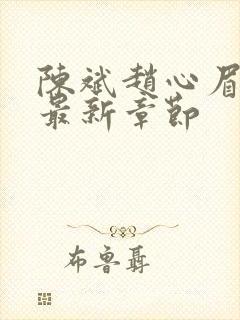 陳斌趙心眉
最新章節
布魯聶